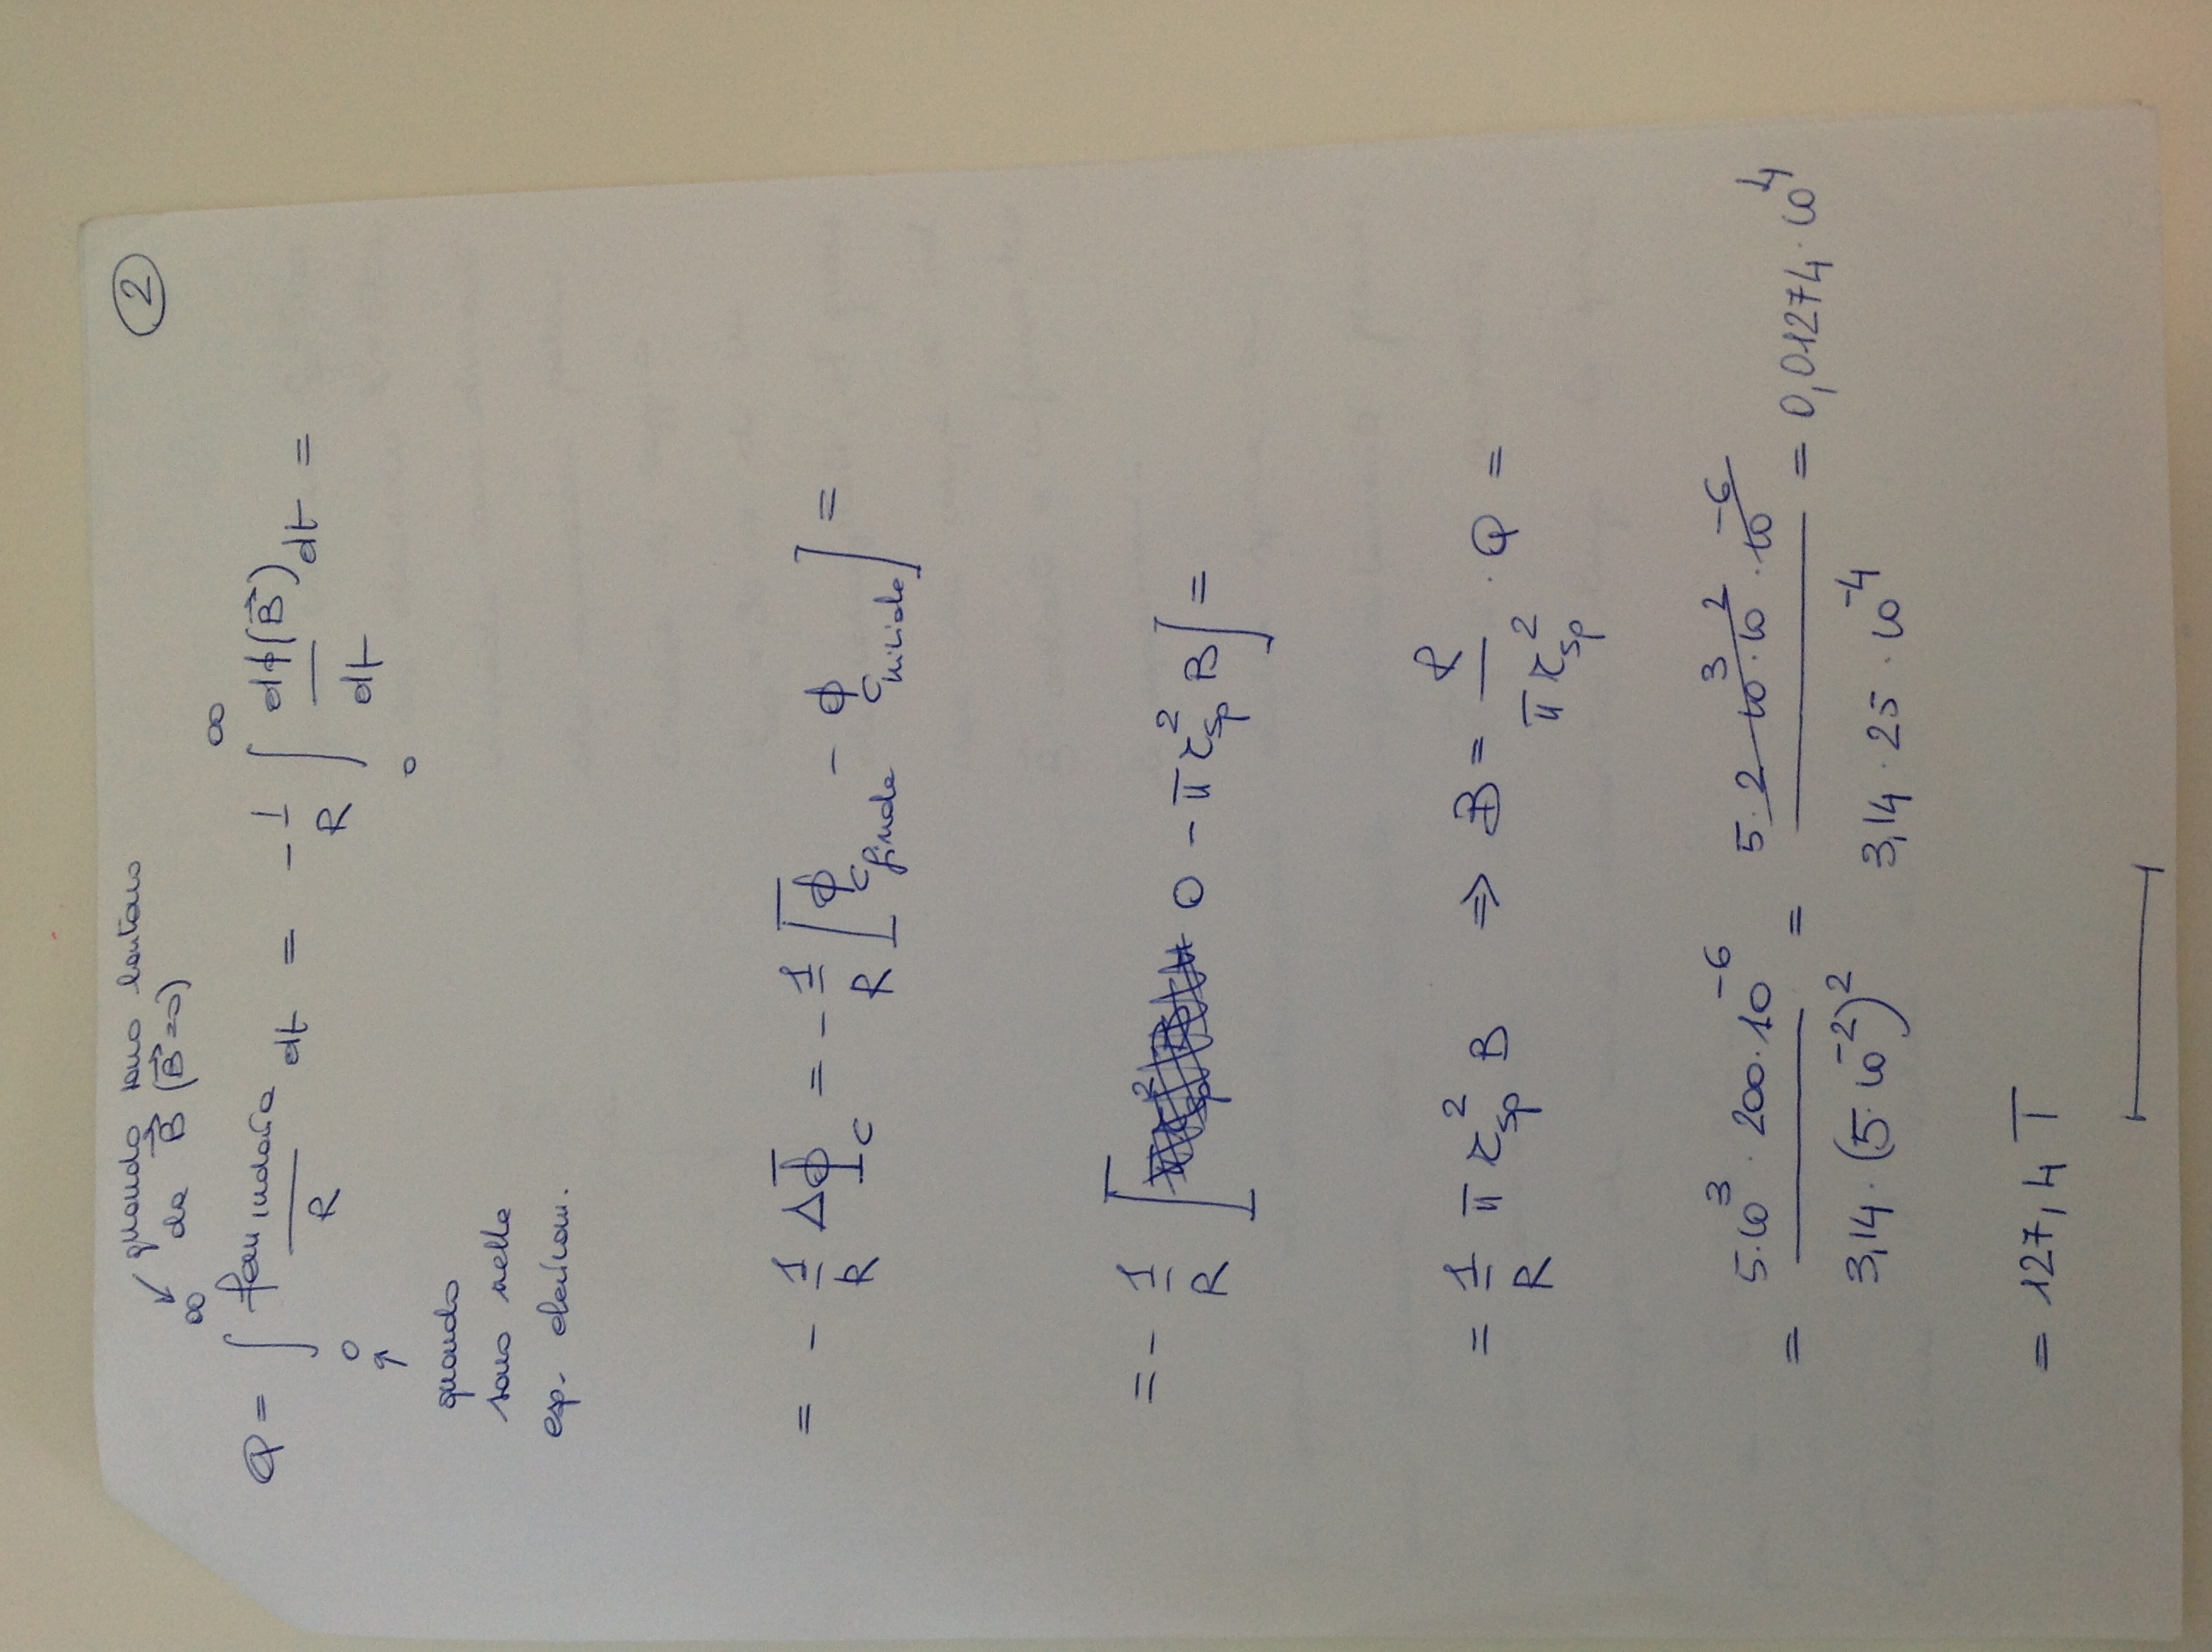 2
quando sono lontano
da B⃗ (B⃗=0)
Q = ∫₀^∞ fem indotta / R dt = - 1/R ∫₀^∞ dϕ(B⃗)/dt dt =
quando
sono nella
= - 1/R ΔΦ_C = - 1/R [ϕ_C finale - ϕ_C iniziale] =
= - 1/R [0 - π r_sp² B] =
= 1/R π r_sp² B ⇒ B = R / π r_sp² · Q =
= 5·10³ · 200·10⁻⁶ / 3,14·(5·10⁻²)² = 5·2 10³·10²·10⁻⁶ / 3,14·25·10⁻⁴ = 0,01274·10⁴
= 127,4 T